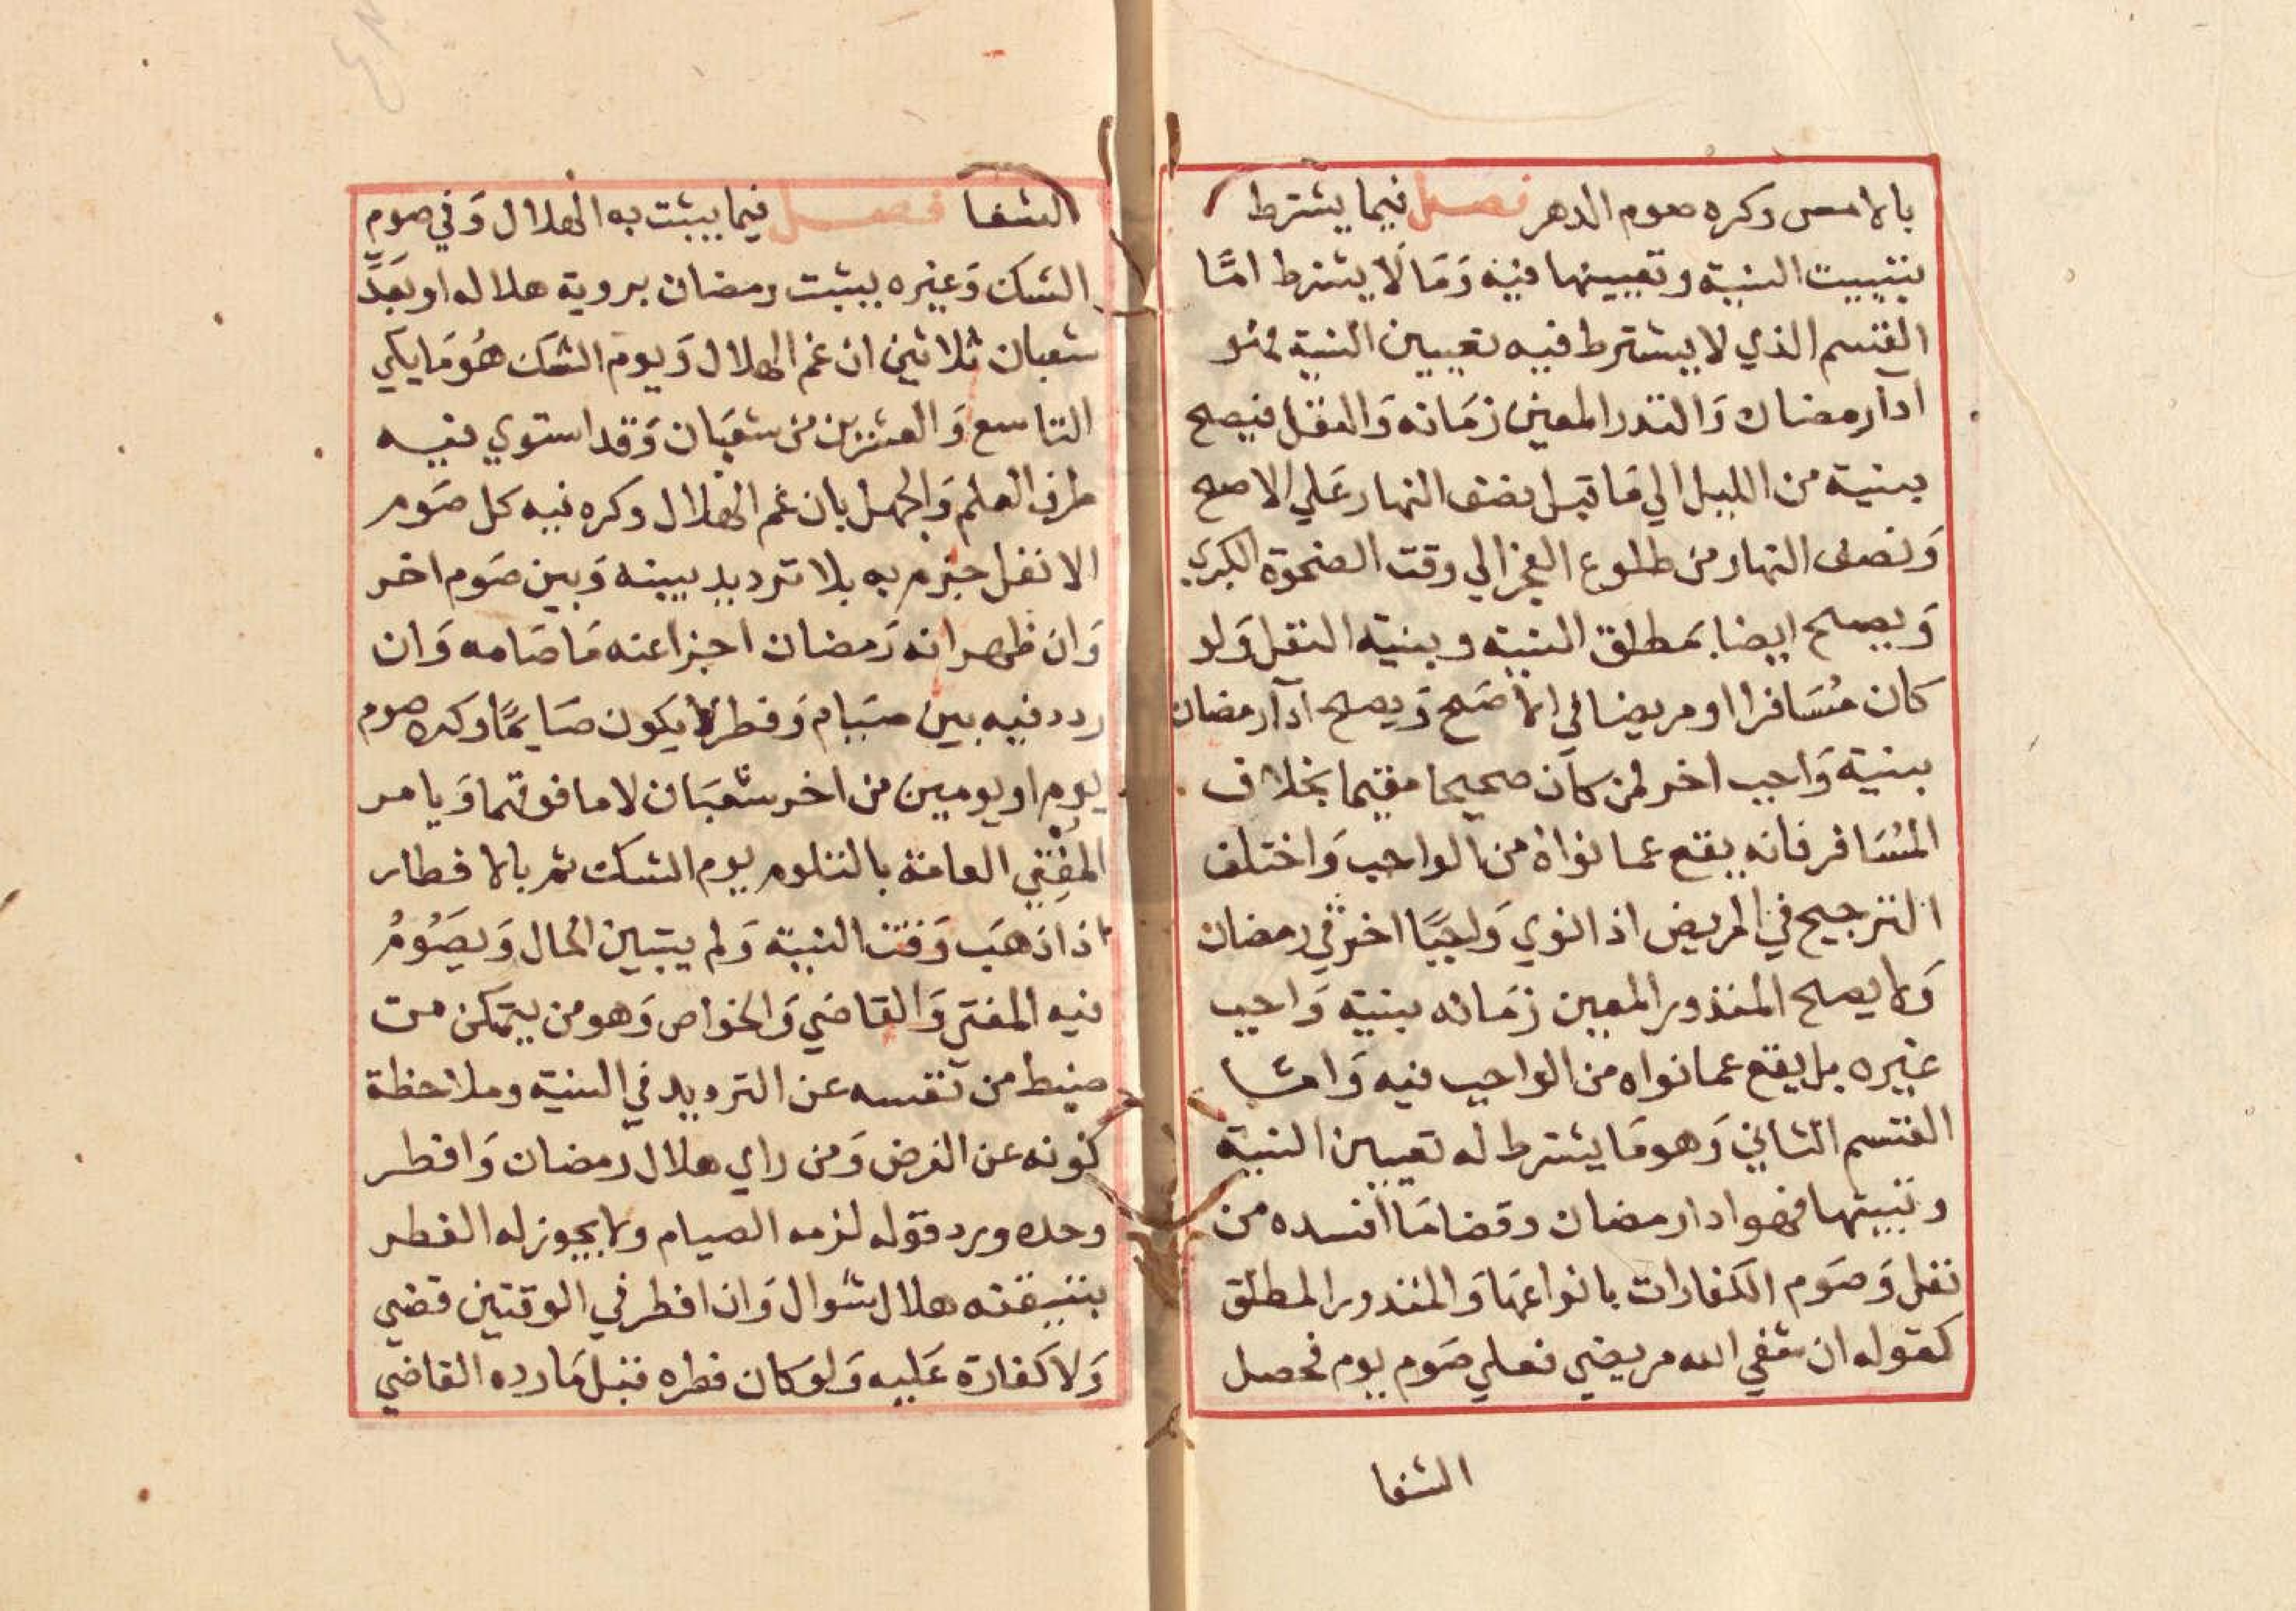 بالامس وكره صوم الدهر فصل فيما يشترط
تبييت النية وتعيينها فيه وَمَا لَا يشترط امَّا
القسم الذي لا يشترط فيه تعيين النية فهو
ادآ رمضان وَالنذر المعين زمَانه وَالنفل فيصح
بنية من الليل الي مَا قبل نصف النهار عَلي الاصح
وَنصف النهار من طلوع الفجر الي وقت الضحوة الكبري
وَيصح ايضا بمطلق النية وبنية النفل وَلو
كان مُسَافرا او مريضا في الاصَح وَيصح ادآ رمضان
بنية وَاجب اخر لمن كان صحيحا مقيما بخلاف
المُسَافر فانه يقع عما نواهُ من الواجب وَاختلف
الترجيح في المريض اذا نوي وَاجبًا اخر في رمضان
وَلا يصح المنذور المعين زمَانه بنية وَاجب
غيره بل يقع عما نواه من الواجب فيه وَامَّا
القسم الثاني وَهو مَا يشترط له تعيين النية
وتبيتها فهو ادا رمضان وقضا مَا افسده من
نفل وَصَوم الكفارات بانواعهَا وَالمنذور المطلق
كقوله ان شفي الله مريضي فعلي صَوم يوم فحصل
الشفا
الشفا فصل فيما يثبت به الهلال وَفي صوم
الشك وَغيره يثبت رمضان بروية هلاله او بعَدِّ
شعبان ثلاثين ان غم الهلال وَيوم الشك هُو مَا يلي
التاسع وَالعشرين من شعبَان وَقد استوي فيه
طرف العلم وَالجهل بان غم الهلال وكره فيه كل صَوم
الا نفل جزم به بلا ترديد بينه وَبين صَوم اخر
وَان ظهر انه رَمضان اجزا عنه مَا صَامه وَان
ردد فيه بين صيَام وَفطر لا يكون صَايمًا وكره صوم
يوم او يومين من اخر شعبَان لا ما فوقهما وَيامر
المفتي العامة بالتلوم يوم الشك ثم بالافطار
اذا ذهَب وَقت النية وَلم يتبين الحال وَيصَومُ
فيه المفتي وَالقاضَي وَالخواص وَهو من يتمكن من
ضبط من نفسه عن الترديد في النية وملاحظة
كونه عن الفرض وَمن راي هلال رمضان وَافطر
وحده ورد قوله لزمه الصيام ولا يجوز له الفطر
بتيقنه هلال شوال وَان افطر في الوقتين قضي
وَلا كفارة عَليه وَلو كان فطره قبل مَا رده القاضي